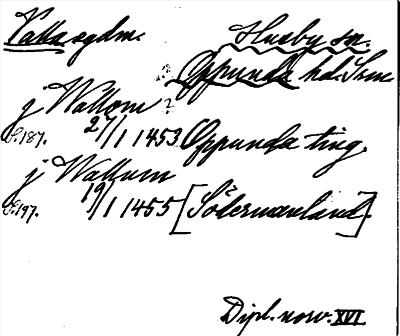 Valla egdm. Husby sn.
Oppunda hd. Srm
j Wallom ?
S. 187. 27/1 1453 Oppunda ting.
j Wallum
S. 197. 19/1 1455 [Södermanland].
Dipl. norv. XVI